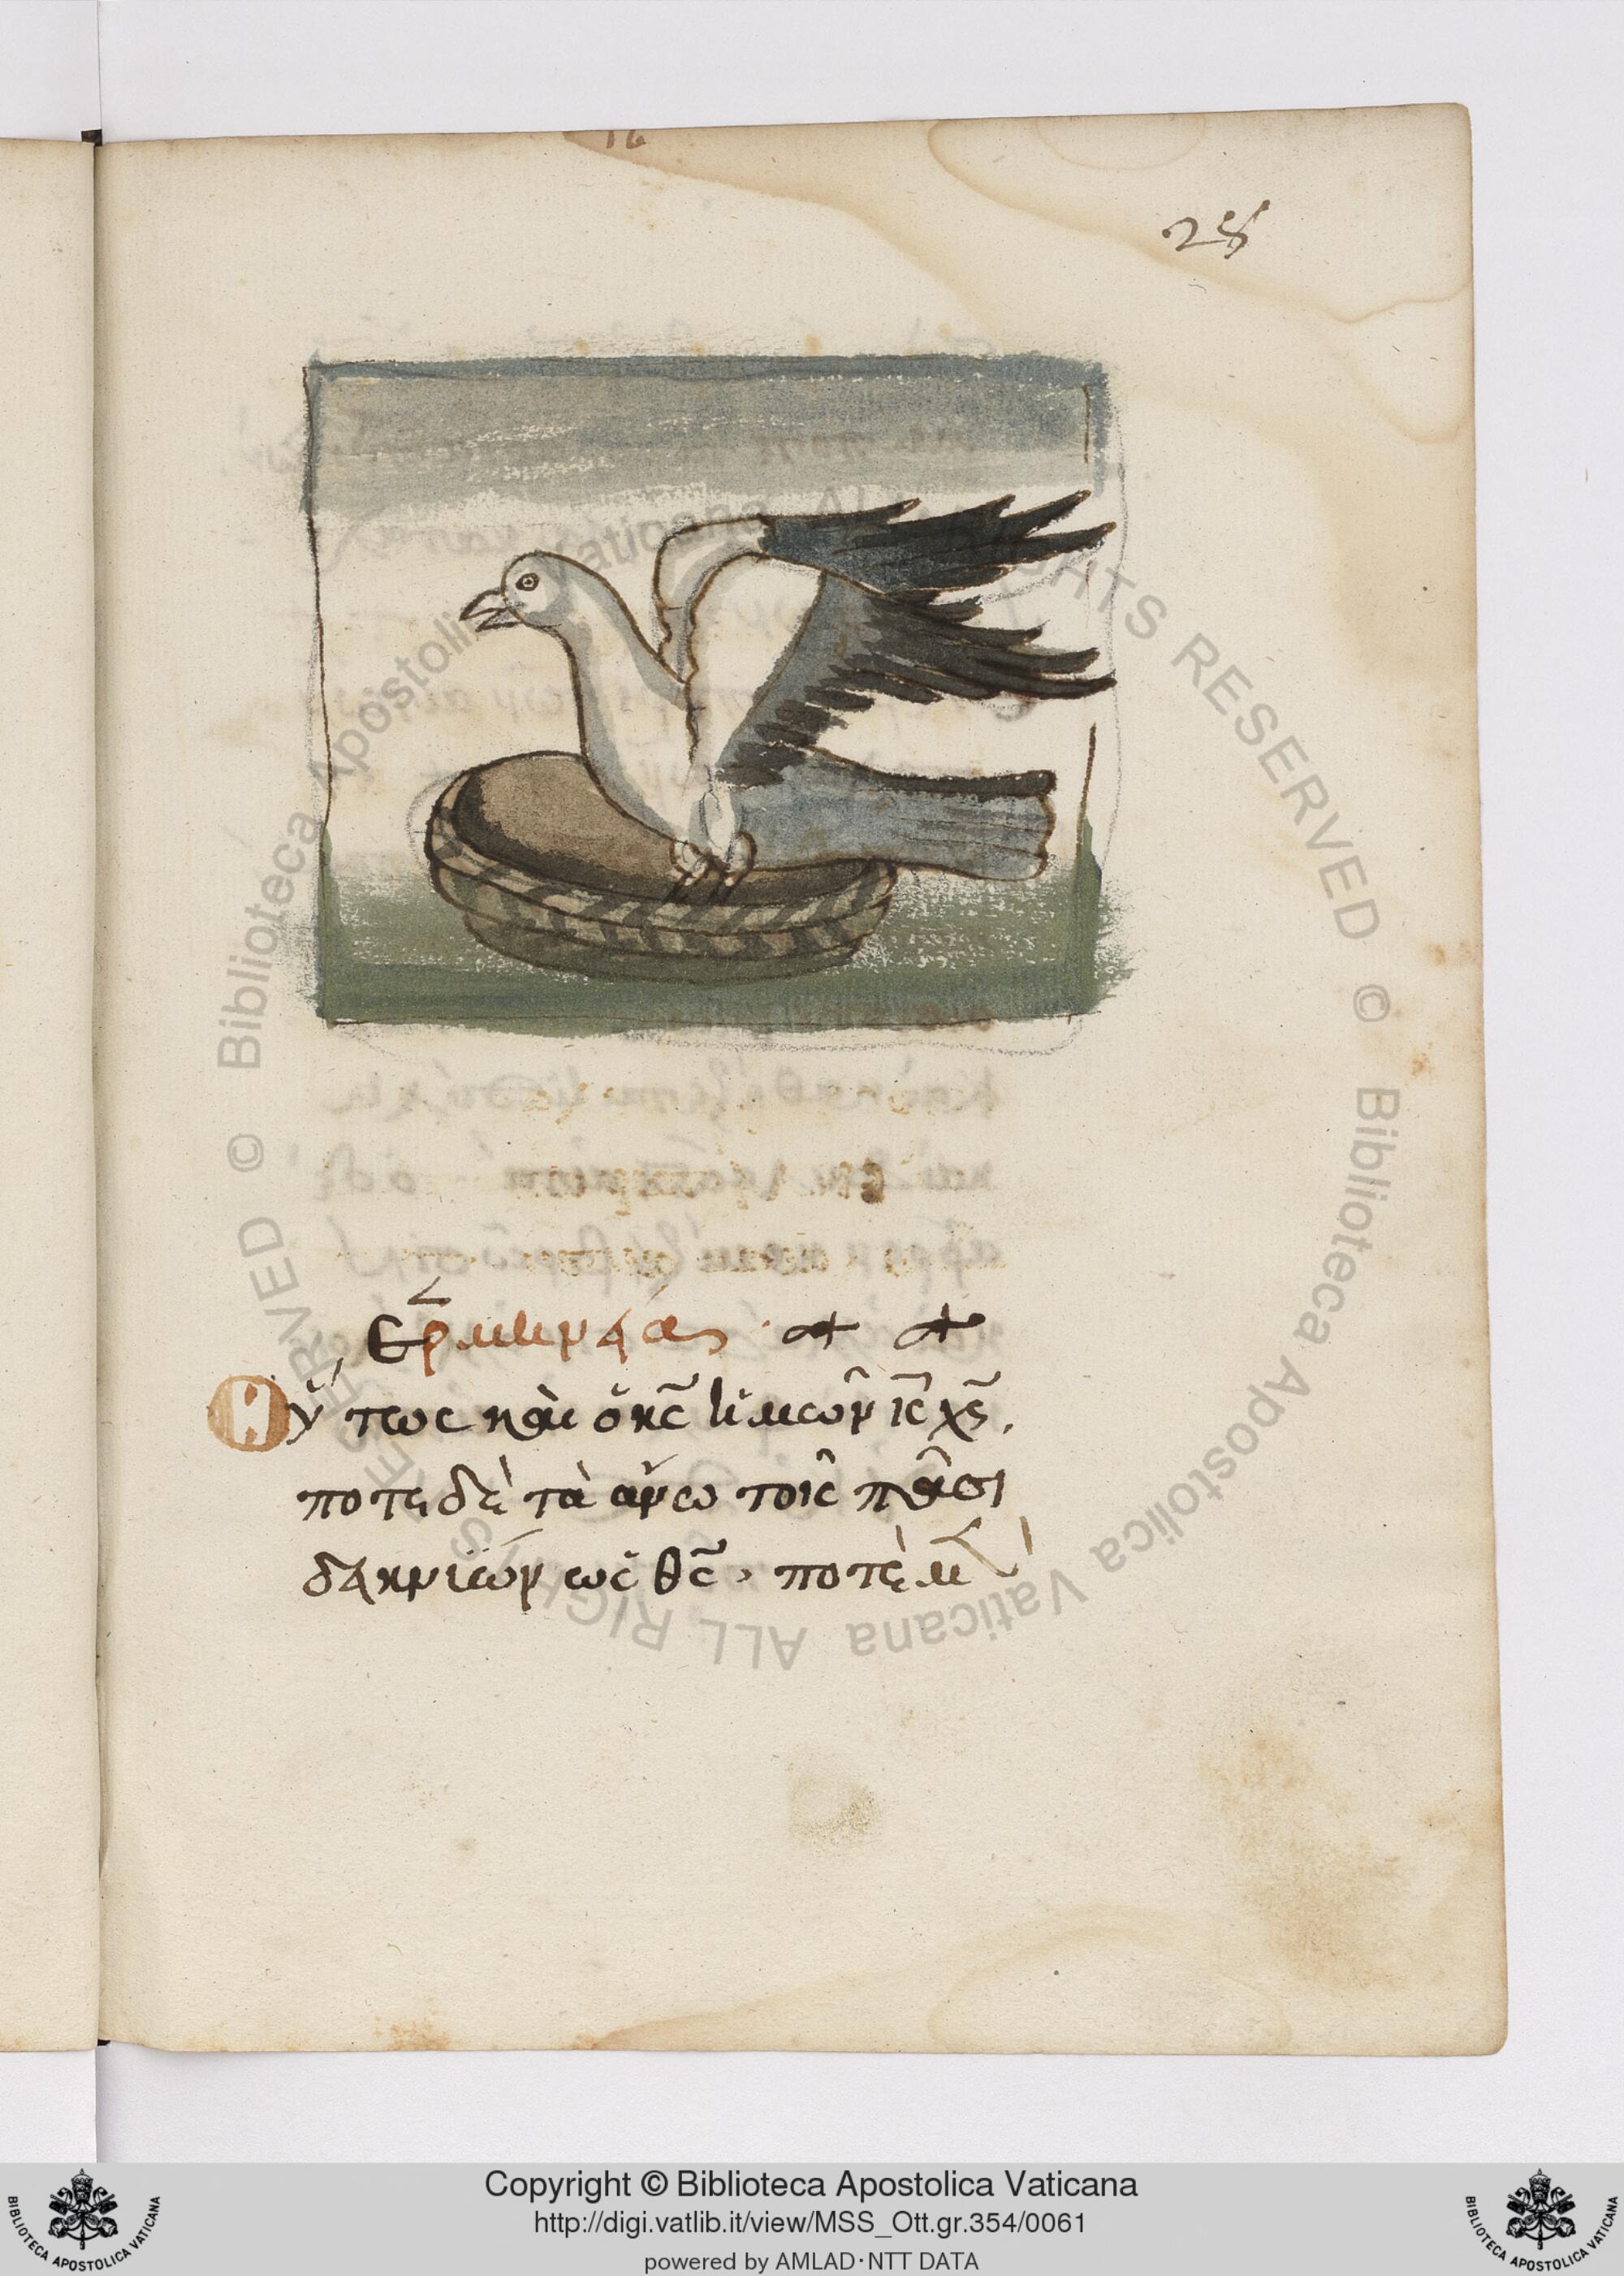 28
Ερμηνεία
Οὕτως καὶ ὁ κς ἡμῶν ις χς,
ποτὲ δὲ τὰ ἄνω τοῖς πᾶσι
δεικνύων ὡς θς, ποτὲ
Copyright © Biblioteca Apostolica Vaticana
http://digi.vatlib.it/view/MSS_Ott.gr.354/0061
powered by AMLAD·NTT DATA
BIBLIOTECA APOSTOLICA VATICANA
BIBLIOTECA APOSTOLICA VATICANA
© Biblioteca Apostolica Vaticana ALL RIGHTS RESERVED © Biblioteca Apostolica Vaticana ALL RIGHTS RESERVED